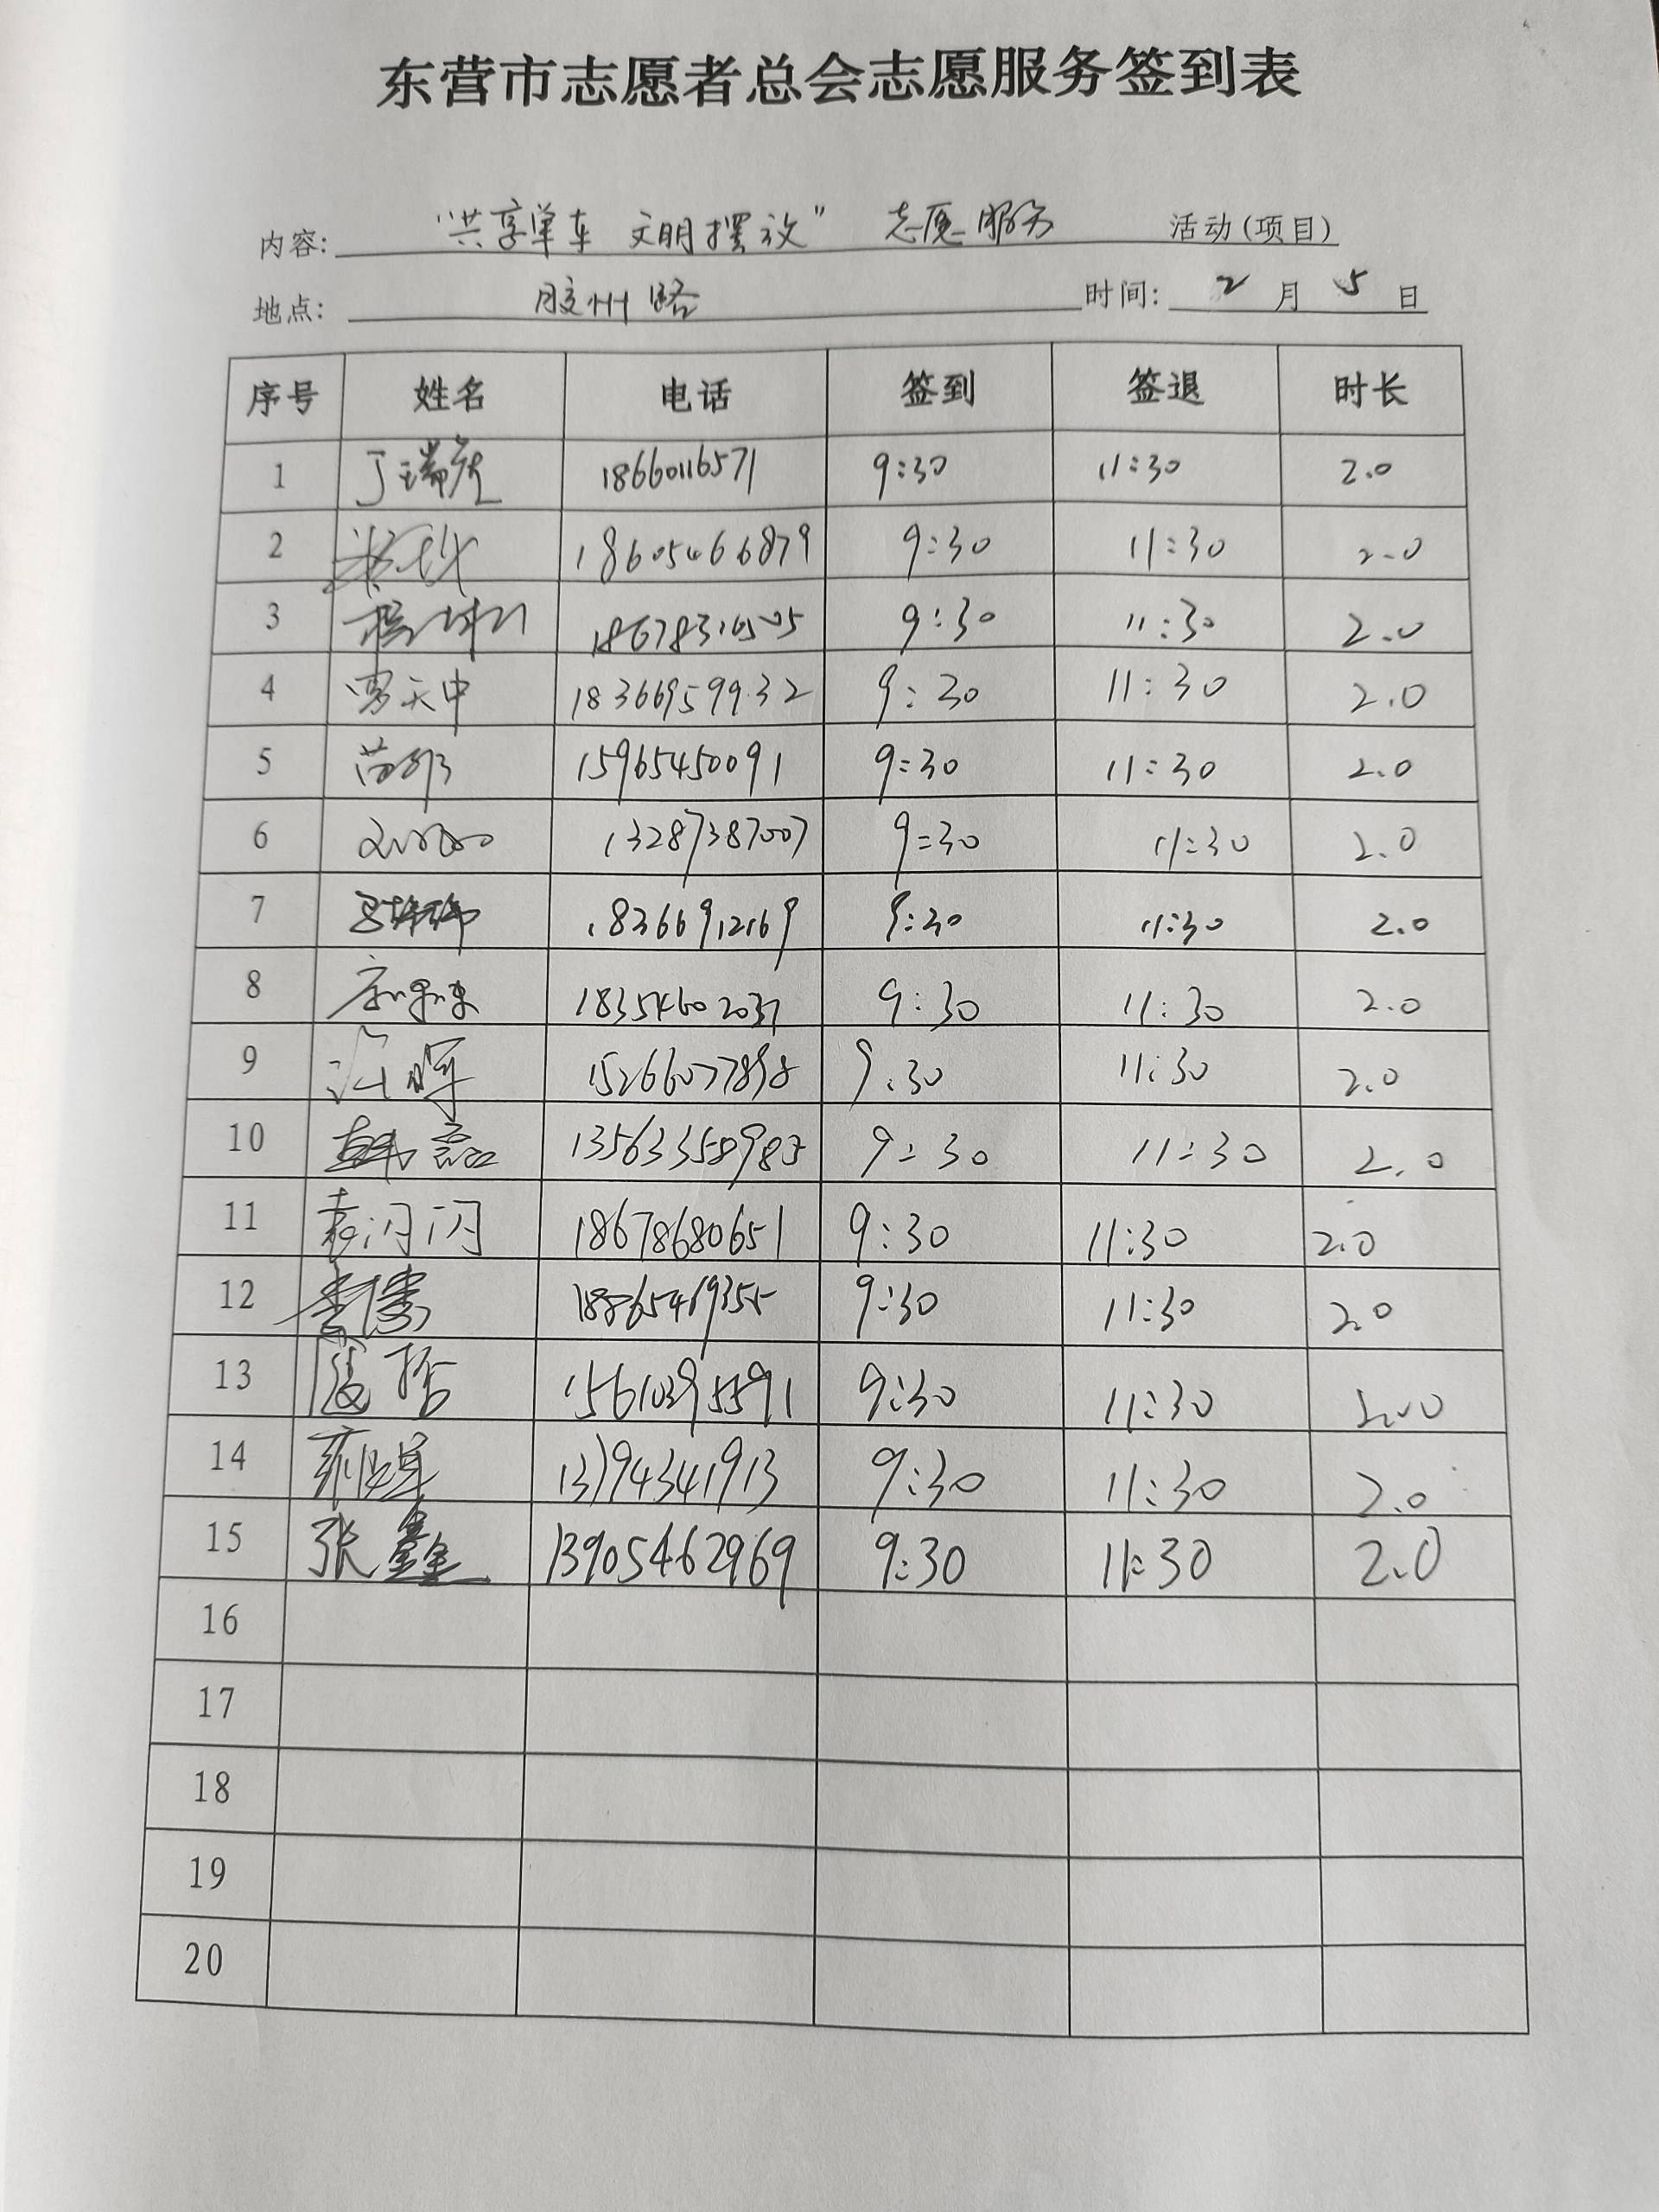 东营市志愿者总会志愿服务签到表
内容: "共享单车 文明摆放" 志愿服务 活动(项目)
地点: 胶州路 时间: 2 月 5 日
序号 姓名 电话 签到 签退 时长
1 丁瑞 18660116571 9:30 11:30 2.0
2 18605466879 9:30 11:30 2.0
3 9:30 11:30 2.0
4 贾天中 18366959932 9:30 11:30 2.0
5 苗 15965450091 9:30 11:30 2.0
6 13287387007 9:30 11:30 2.0
7 18366912169 9:30 11:30 2.0
8 18354602037 9:30 11:30 2.0
9 晖 15266077898 9:30 11:30 2.0
10 韩磊 9:30 11:30 2.0
11 袁闪闪 18678680651 9:30 11:30 2.0
12 18865469355 9:30 11:30 2.0
13 15610395591 9:30 11:30 2.00
14 13794341913 9:30 11:30 2.0
15 张鑫 13905462969 9:30 11:30 2.0
16
17
18
19
20